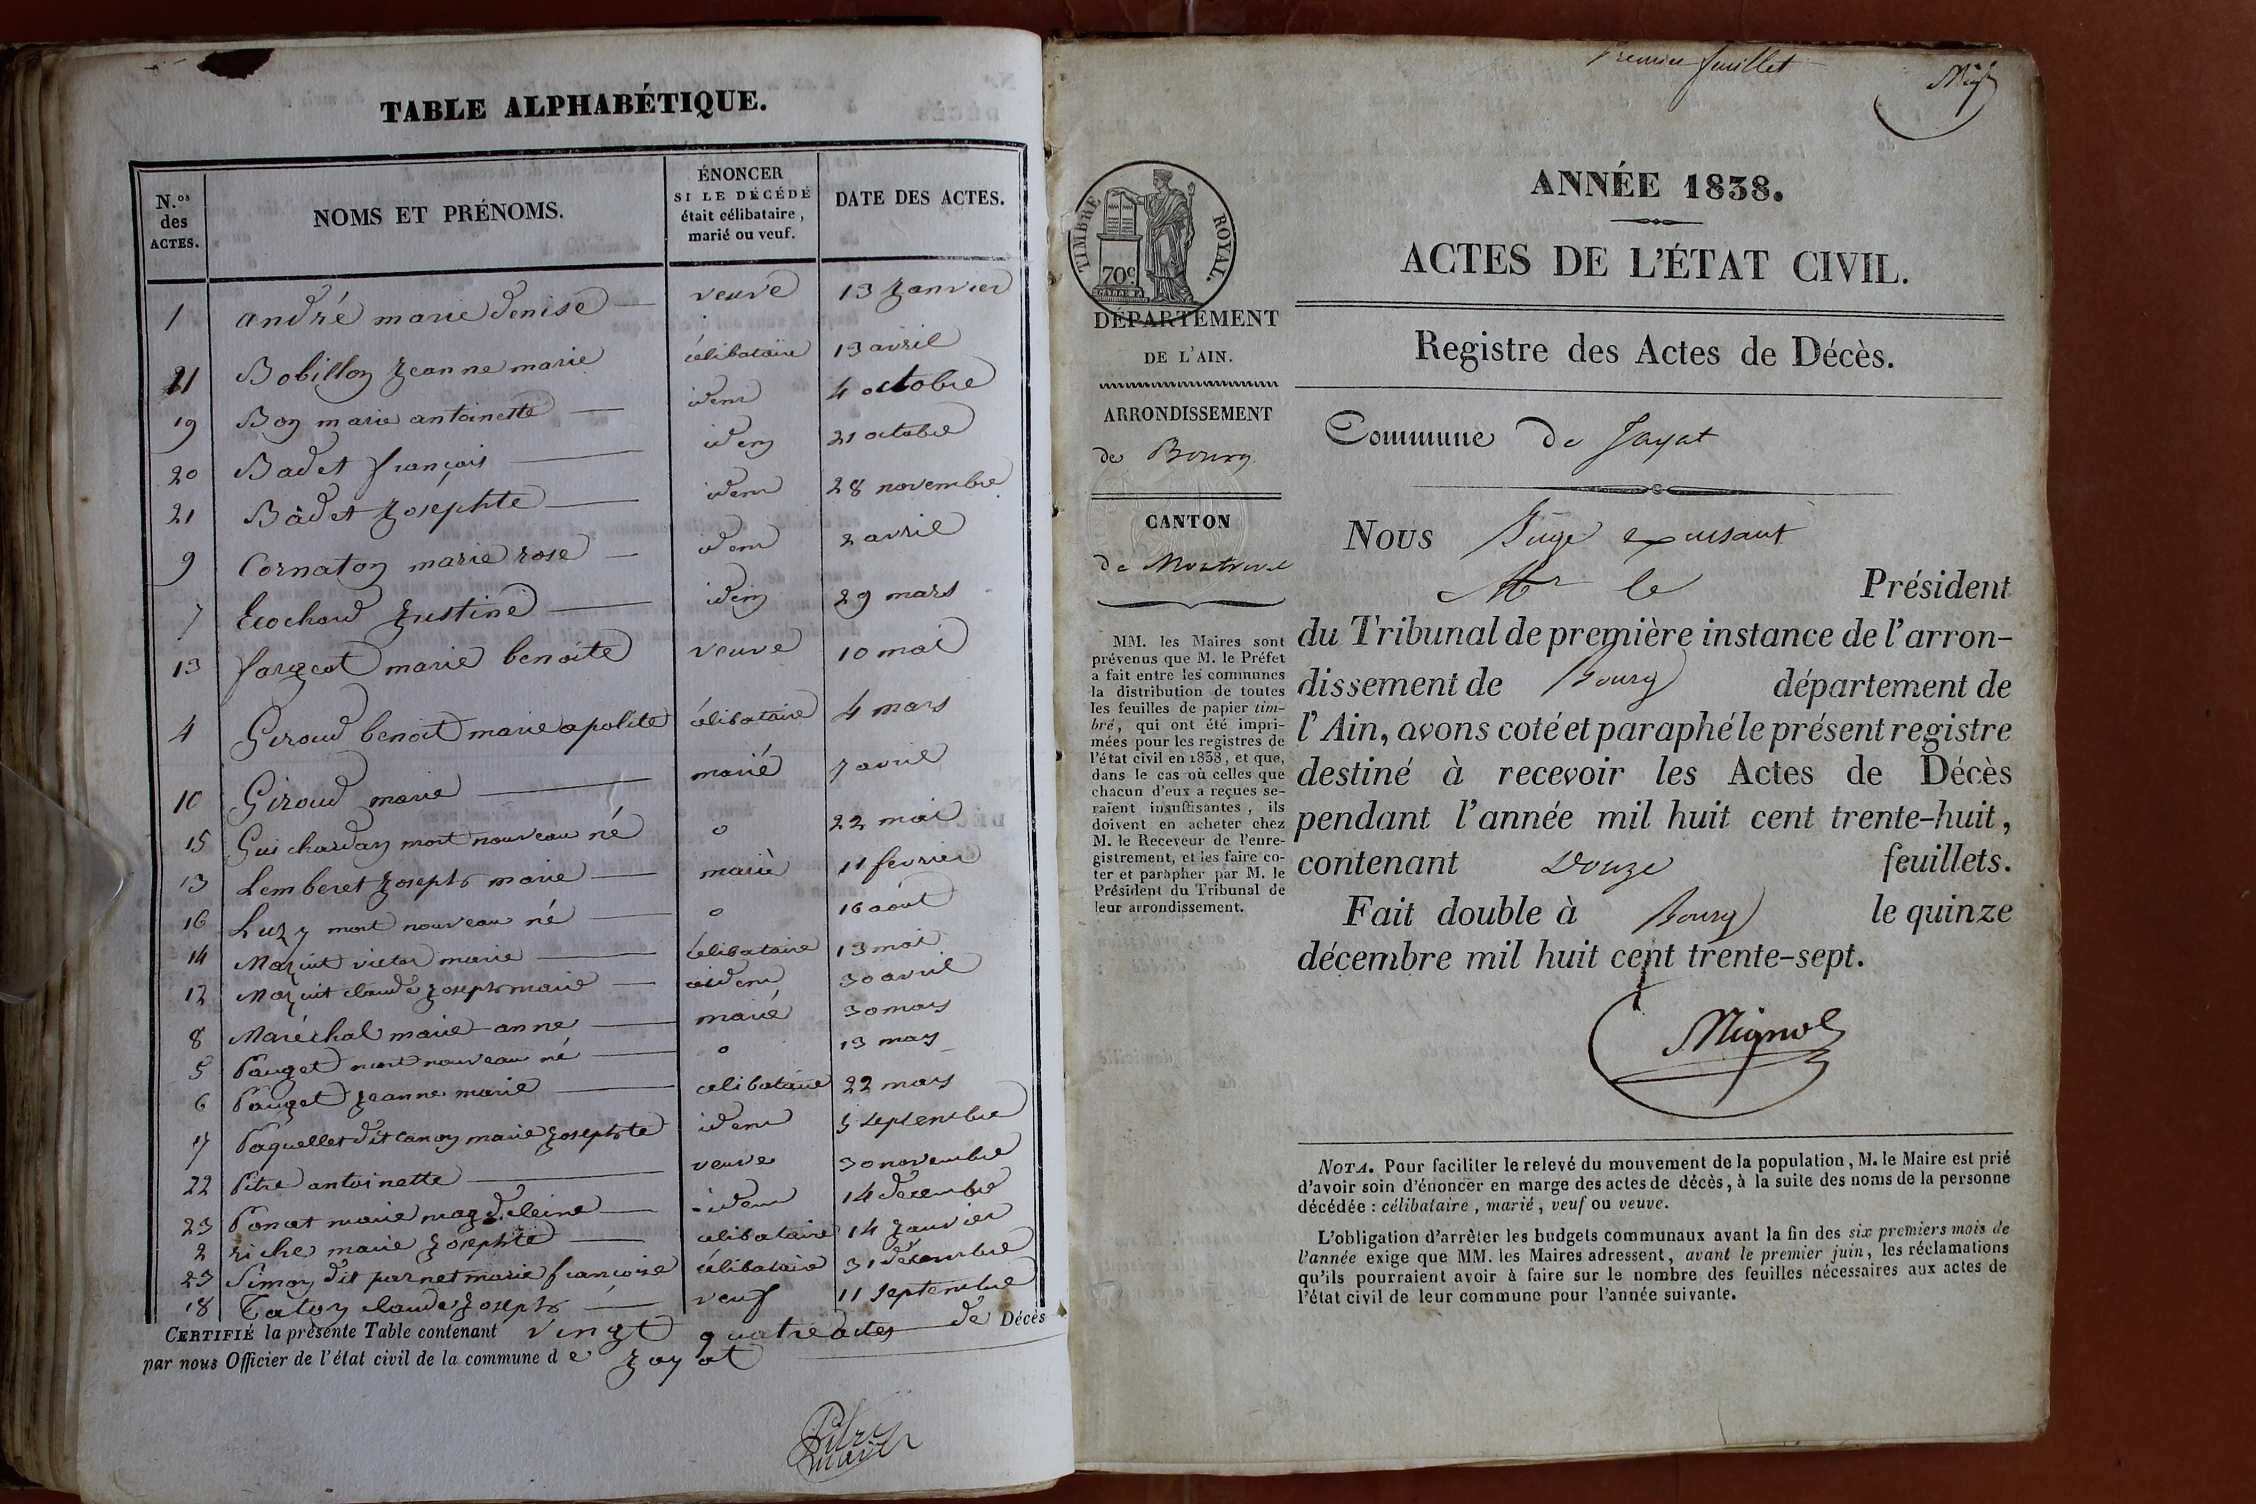 TABLE ALPHABÉTIQUE.
N.os des ACTES.
NOMS ET PRÉNOMS.
ÉNONCER SI LE DÉCÉDÉ était célibataire, marié ou veuf.
DATE DES ACTES.
1 andré marie denise veuve 13 Janvier
11 Bobillon Jeanne marie célibataire 13 avril
19 Boy marie antoinette idem 4 octobre
20 Badet françois idem 21 octobre
21 Badet Josephte idem 28 novembre
9 Cornaton marie rose idem 2 avril
7 Ecochard Justine idem 29 mars
13 fargeot marie benoite veuve 10 mai
4 Giroud benoit marie apolite célibataire 4 mars
10 Giroud marie marié 7 avril
15 Guichardan mort nouveau né 0 22 mai
13 Lemberet Joseph marie marié 11 fevrier
16 Luzy mort nouveau né 0 16 août
14 Mazuit victor marie célibataire 13 mai
12 Mazuit claude Joseph marie idem 30 avril
8 Maréchal marie anne marié 30 mars
5 Pauget mort nouveau né 0 13 mars
6 Pauget Jeanne marie célibataire 22 mars
17 Paquellet dit canoy marie Josephte idem 5 septembre
22 Pitre antoinette veuve 30 novembre
23 Poncet marie magdeleine idem 14 decembre
2 riche marie Josephte célibataire 14 Janvier
23 Simon dit parnet marie francoise célibataire 31 décembre
18 Taton claude Joseph veuf 11 septembre
CERTIFIÉ la présente Table contenant vingt quatre actes de Décès
par nous Officier de l'état civil de la commune de Jayat
Pitre
maire
Premier feuillet
TIMBRE ROYAL.
70c
DÉPARTEMENT
DE L'AIN.
ARRONDISSEMENT
de Bourg
CANTON
de Montrevel
MM. les Maires sont
prévenus que M. le Préfet
a fait entre les communes
la distribution de toutes
les feuilles de papier tim-
bré, qui ont été impri-
mées pour les registres de
l'état civil en 1838, et que,
dans le cas où celles que
chacun d'eux a reçues se-
raient insuffisantes, ils
doivent en acheter chez
M. le Receveur de l'enre-
gistrement, et les faire co-
ter et parapher par M. le
Président du Tribunal de
leur arrondissement.
ANNÉE 1838.
ACTES DE L'ÉTAT CIVIL.
Registre des Actes de Décès.
Commune de Jayat
Nous Juge excusant
Mr le Président
du Tribunal de première instance de l'arron-
dissement de Bourg département de
l'Ain, avons coté et paraphé le présent registre
destiné à recevoir les Actes de Décès
pendant l'année mil huit cent trente-huit,
contenant Douze feuillets.
Fait double à Bourg le quinze
décembre mil huit cent trente-sept.
Mignot
NOTA. Pour faciliter le relevé du mouvement de la population, M. le Maire est prié
d'avoir soin d'énoncer en marge des actes de décès, à la suite des noms de la personne
décédée : célibataire, marié, veuf ou veuve.
L'obligation d'arrêter les budgets communaux avant la fin des six premiers mois de
l'année exige que MM. les Maires adressent, avant le premier juin, les réclamations
qu'ils pourraient avoir à faire sur le nombre des feuilles nécessaires aux actes de
l'état civil de leur commune pour l'année suivante.